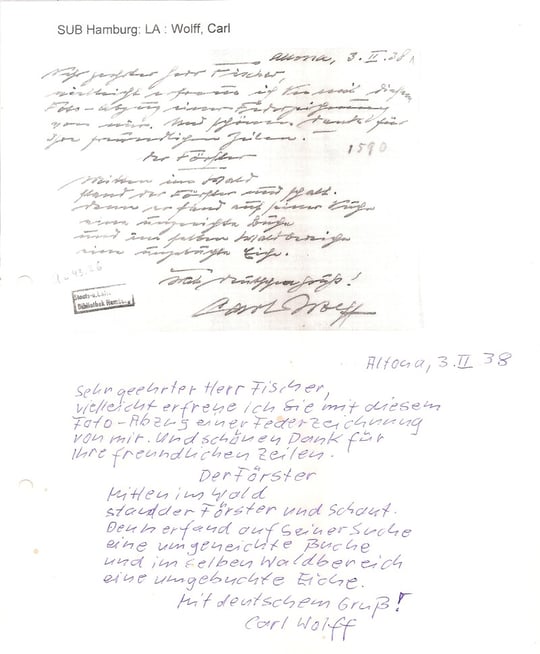 SUB Hamburg: LA : Wolff, Carl
Altona, 3. II. 38
Sehr geehrter Herr Fischer,
vielleicht erfreue ich Sie mit diesem
Foto-Abzug einer Federzeichnung
von mir. Und schönen Dank für
Ihre freundlichen Zeilen.
1590
der Förster
Mitten im Wald
stand der Förster und schalt.
denn er fand auf seiner Suche
eine umgeeichte Buche
und im selben Waldbereiche
eine umgebuchte Eiche.
Mit deutschem Gruß!
Staats-u. Univ.
Bibliothek Hamburg
Carl Wolff
Altona, 3. II 38
Sehr geehrter Herr Fischer,
vielleicht erfreue ich Sie mit diesem
Foto-Abzug einer Federzeichnung
von mir. Und schönen Dank für
Ihre freundlichen Zeilen.
Der Förster
Mitten im Wald
stand der Förster und schaut.
Denn er fand auf seiner Suche
eine umgeneichte Buche
und im selben Waldbereich
eine umgebuchte Eiche.
Mit deutschem Gruß!
Carl Wolff